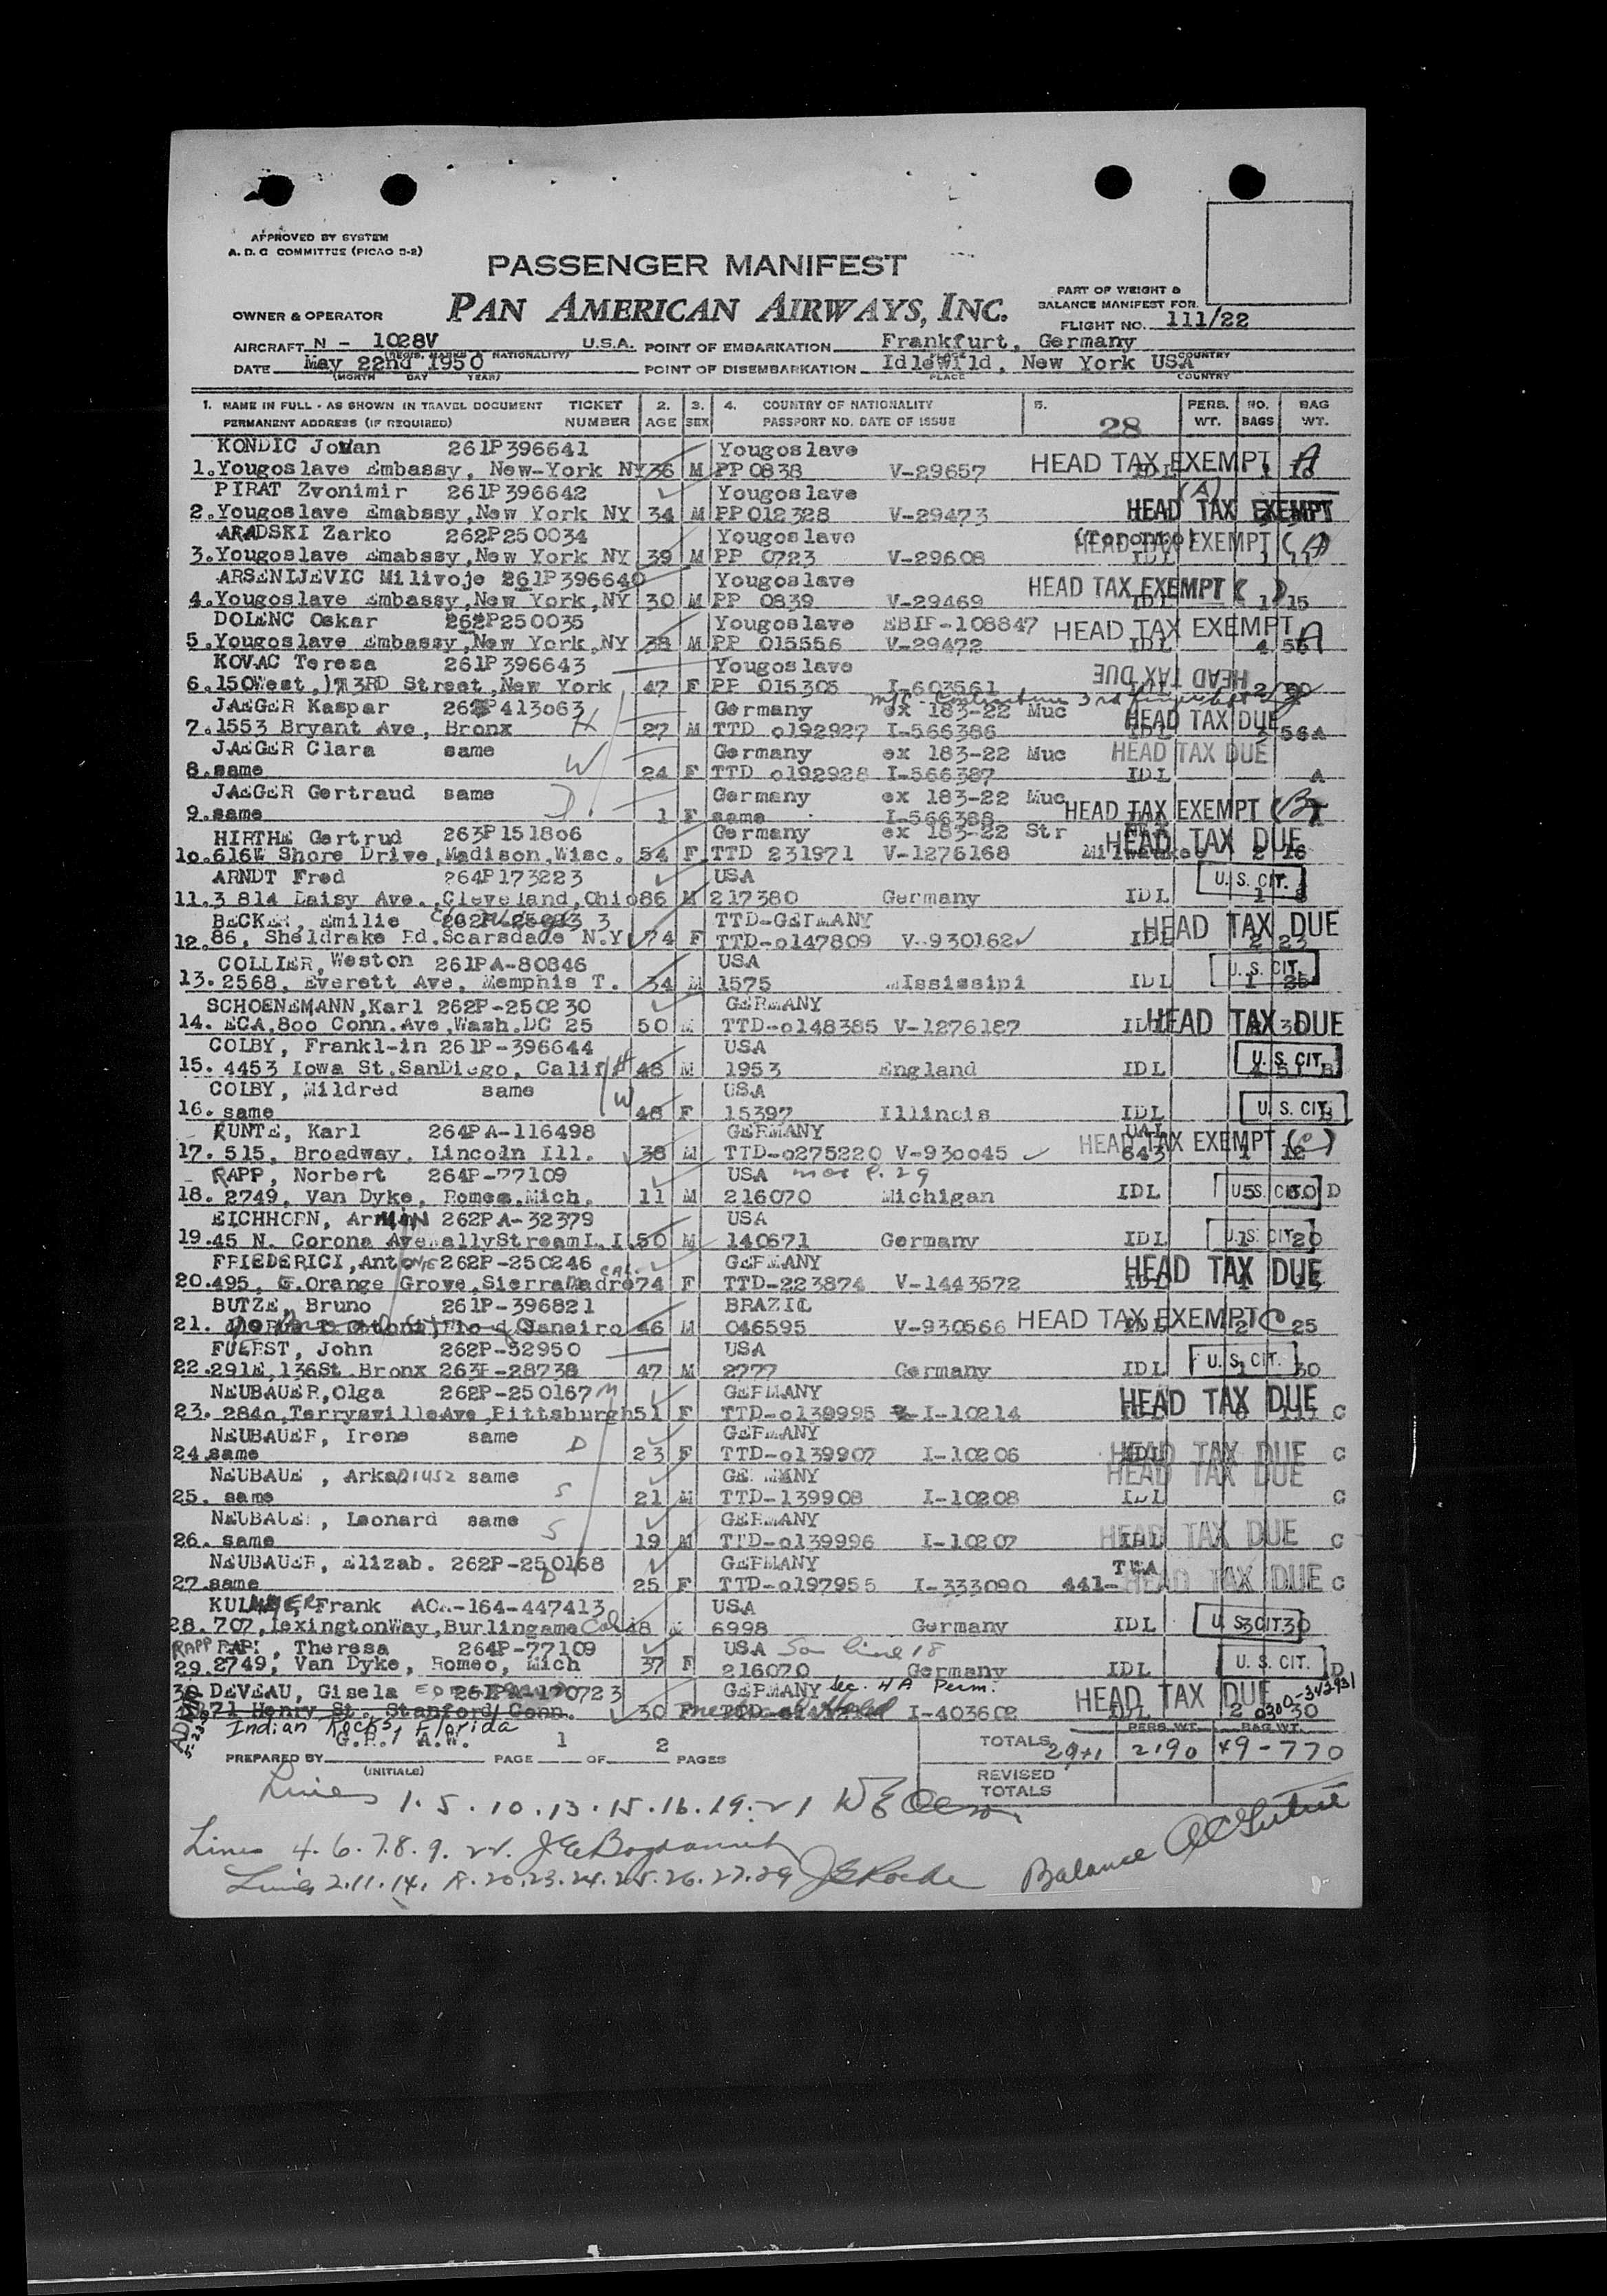 APPROVED BY SYSTEM
A. D. C COMMITTEE (PICAO 5-2)
PASSENGER MANIFEST
PAN AMERICAN AIRWAYS, INC.
OWNER & OPERATOR
PART OF WEIGHT &
BALANCE MANIFEST FOR
FLIGHT NO. 111/22
AIRCRAFT N - 1028V U.S.A. POINT OF EMBARKATION Frankfurt, Germany
(REGIS. MARKS & NATIONALITY) PLACE COUNTRY
DATE May 22nd 1950 POINT OF DISEMBARKATION Idlewild, New York USA
(MONTH DAY YEAR) PLACE COUNTRY
1. NAME IN FULL - AS SHOWN IN TRAVEL DOCUMENT TICKET 2. 3. 4. COUNTRY OF NATIONALITY 5. PERS. NO. BAG
PERMANENT ADDRESS (IF REQUIRED) NUMBER AGE SEX PASSPORT NO. DATE OF ISSUE 28 WT. BAGS WT.
KONDIC Jovan 261P396641 Yougoslave
1. Yougoslave Embassy, New-York NY 36 M PP 0838 V-29657 HEAD TAX EXEMPT A
PIRAT Zvonimir 261P396642 Yougoslave (A)
2. Yougoslave Emabssy, New York NY 34 M PP 012328 V-29473 HEAD TAX EXEMPT
ARADSKI Zarko 262P250034 Yougoslave (Toronto)
3. Yougoslave Emabssy, New York NY 39 M PP 0723 V-29608 HEAD TAX EXEMPT (A)
ARSENIJEVIC Milivoje 261P396640 Yougoslave HEAD TAX EXEMPT
4. Yougoslave Embassy, New York, NY 30 M PP 0839 V-29469 IDL 1 15
DOLENC Oskar 262P250035 Yougoslave EBIF-108847 HEAD TAX EXEMPT A
5. Yougoslave Embassy, New York, NY 38 M PP 015556 V-29472 IDL 4 56
KOVAC Teresa 261P396643 Yougoslave HEAD TAX DUE
6. 150West, 173RD Street, New York 47 F PP 015305 I-603561
JAEGER Kaspar 413063 Germany ex 183-22 Muc HEAD TAX DUE
7. 1553 Bryant Ave, Bronx H 27 M TTD 0192927 I-566386 56A
JAEGER Clara same Germany ex 183-22 Muc HEAD TAX DUE
8. same W 24 F TTD 0192928 I-566387 IDL A
JAEGER Gertraud same Germany ex 183-22 Muc
9. same D 1 F same I-566388 HEAD TAX EXEMPT (B)
HIRTHE Gertrud 263P151806 Germany ex 183-22 Str HEAD TAX DUE
10. 616W Shore Drive, Madison, Wisc. 54 F TTD 231971 V-1276168 Milwaukee 2 16
ARNDT Fred 264P173223 USA U. S. CIT.
11. 3 814 Daisy Ave., Cleveland, Ohio 86 M 217380 Germany IDL 1 8
BECKER, Emilie TTD-GERMANY HEAD TAX DUE
12. 86, Sheldrake Rd. Scarsdade N.Y 74 F TTD-0147809 V-930162 IDL 2 23
COLLIER, Weston 261PA-80846 USA U. S. CIT.
13. 2568, Everett Ave, Memphis T. 34 M 1575 Mississipi IDL 1 25
SCHOENEMANN, Karl 262P-250230 GERMANY
14. ECA, 800 Conn. Ave, Wash. DC 25 50 M TTD-0148385 V-1276187 HEAD TAX DUE
COLBY, Frankl-in 261P-396644 USA U. S. CIT.
15. 4453 Iowa St. SanDiego, Calif H 48 M 1953 England IDL
COLBY, Mildred same USA
16. same W 48 F 15397 Illinois IDL U. S. CIT.
RUNTE, Karl 264PA-116498 GERMANY UAL
17. 515, Broadway, Lincoln Ill. 38 M TTD-0275220 V-930045 643 HEAD TAX EXEMPT (C)
RAPP, Norbert 264P-77109 USA
18. 2749, Van Dyke, Romeo, Mich. 11 M 216070 Michigan IDL U. S. CIT. D
EICHHORN, ArMIN 262PA-32379 USA
19. 45 N. Corona Ave. allyStream L. I. 50 M 140671 Germany IDL U. S. CIT. 20
FRIEDERICI, AntONIE 262P-250246 CAL. GERMANY
20. 495, G.Orange Grove, SierraMadre 74 F TTD-223874 V-1443572 HEAD TAX DUE
BUTZE, Bruno 261P-396821 BRAZIL
21. 46 M 046595 V-930566 HEAD TAX EXEMPT C 25
FUERST, John 262P-52950 USA
22. 291E, 136St. Bronx 263P-28738 47 M 2777 Germany IDL U. S. CIT. 30
NEUBAUER, Olga 262P-250167 M GERMANY
23. 2840, TerrysvilleAve, Pittsburgh 51 F TTD-0139995 I-10214 HEAD TAX DUE C
NEUBAUER, Irene same D GERMANY
24. same 23 F TTD-0139907 I-10206 HEAD TAX DUE C
NEUBAUE , Arka same GERMANY HEAD TAX DUE
25. same S 21 M TTD-139908 I-10208 IDL C
NEUBAUE , Leonard same GERMANY
26. same S 19 M TTD-0139996 I-10207 HEAD TAX DUE C
NEUBAUER, Elizab. 262P-250168 GERMANY TWA
27. same D 25 F TTD-0197955 I-333090 441- HEAD TAX DUE C
Frank -164-447413 USA
28. 707, LexingtonWay, Burlingame Cal 48 M 6998 Germany IDL U. S. CIT. 30
RAPP, Theresa 264P-77109 USA Son line 18
29. 2749, Van Dyke, Romeo, Mich 37 F 216070 Germany IDL U. S. CIT. D
30. DEVEAU, Gisela 261PA-170723 GERMANY Sec. 4A Perm.
71 Henry St. Stanford Conn. 30 F I-403602 HEAD TAX DUE 0300-343931
Indian Rocks, Florida 2 30
PREPARED BY G.R./ A.W. PAGE 1 OF 2 PAGES
(INITIALS)
PERS. WT. BAG WT.
TOTALS 29+1 2190 49-770
REVISED
TOTALS
Lines 1. 5. 10. 13. 15. 16. 19. 21
Lines 4. 6. 7. 8. 9. 22.
Lines 2. 11. 14. 18. 20. 23. 24. 25. 26. 27. 29
Balance